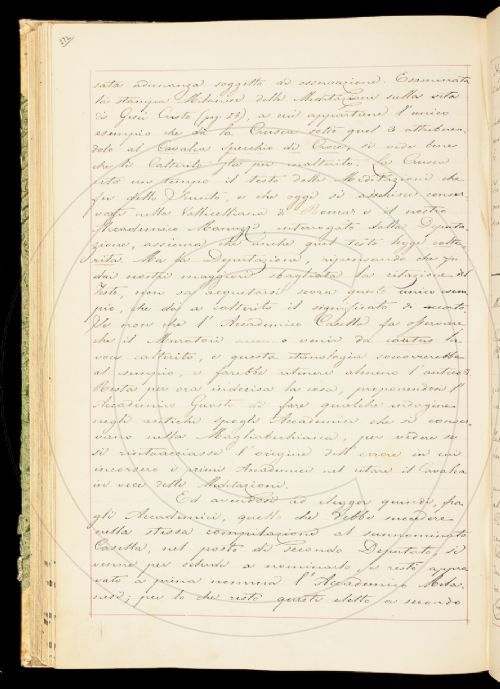 374
sata adunanza soggetto di osservazione. Esaminata
la stampa Milanese delle Meditazioni sulla vita
di Gesù Cristo (pag 59), a cui appartiene l'unico
esempio che dà la Crusca sotto quel 3 attribuen-
dolo al Cavalca Specchio di Croce, si vede bene
che il Calterito sta per scalterito. La Crusca
citò un tempo il testo delle Meditazioni che
fu dello e che oggi si conser-
vare nella Vallicelliana di Roma: e il nostro
Accademico Manuzzi interrogato dalla Deputa-
zione, assicura che anche quel testo legge calte-
rita. Ma la Deputazione, ripensando che fu
dai nostri maggiori sbagliata la citazione del
Testo, non sa acquetarsi sovra questo unico esem-
pio, che dà a calterito il significato di
Se non che l'Accademico Casella fa osservare
che il Muratori venir da cautus la
voce calterito, e questa etimologia soccorrerebbe
al esempio, e farebbe ritenere almeno l'antico 3
Resta per ora indecisa la cosa, proponendosi l'
Accademico Guasti di fare qualche indagine
negli antichi spogli Accademici che si conser-
vano nella Magliabechiana, per vedere se
si rintracciasse l'origine dell'errore in cui
incorsero i primi Accademici nel citare il Cavalca
in vece delle Meditazioni.
Ed avendosi ad elegger quindi, fra
gli Accademici, quello che debbe succedere
nella stessa compilazione al sunnominato
Casella, nel posto di secondo Deputato si
venne per schede a nominarlo e restò appro-
vato a prima nomina l'Accademico Mila-
nesi; per lo che restò questi eletto a secondo